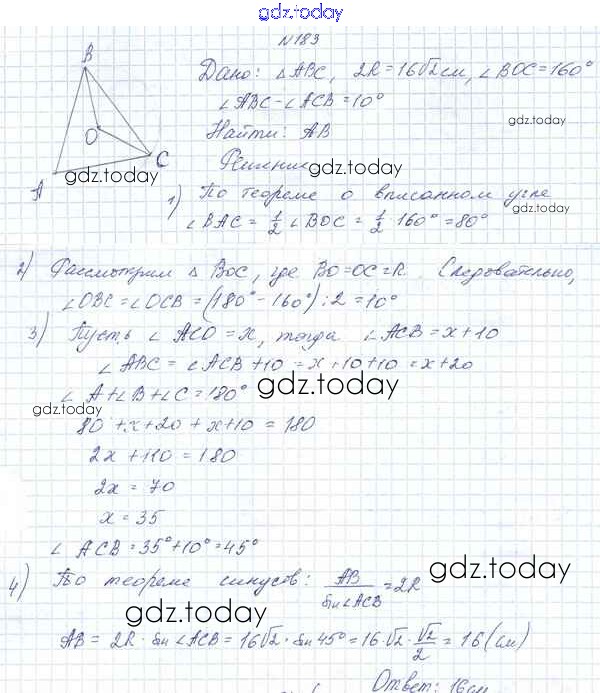 gdz.today
№183
B
Дано: △ABC, 2R=16√2 см, ∠BOC=160°
∠ABC-∠ACB=10°
gdz.today
O
Найти: AB
C
Решение
gdz.today
gdz.today
A
1) По теореме о вписанном угле
gdz.today
∠BAC = 1/2 ∠BOC = 1/2 · 160° = 80°
2) Рассмотрим △ BOC, где BO=OC=R. Следовательно,
∠OBC=∠OCB=(180°-160°):2=10°
3) Пусть ∠ ACO = x, тогда ∠ACB = x+10
∠ABC = ∠ACB+10 = x+10+10 = x+20
∠ A+∠B+∠C=180°
gdz.today
gdz.today
80 + x+20 + x+10 = 180
2x + 110 = 180
2x = 70
x = 35
∠ ACB = 35°+10° = 45°
4) По теореме синусов: AB/sin∠ACB = 2R
gdz.today
gdz.today
AB = 2R · sin ∠ACB = 16√2 · sin 45° = 16·√2·√2/2 = 16 (см)
Ответ: 16 см